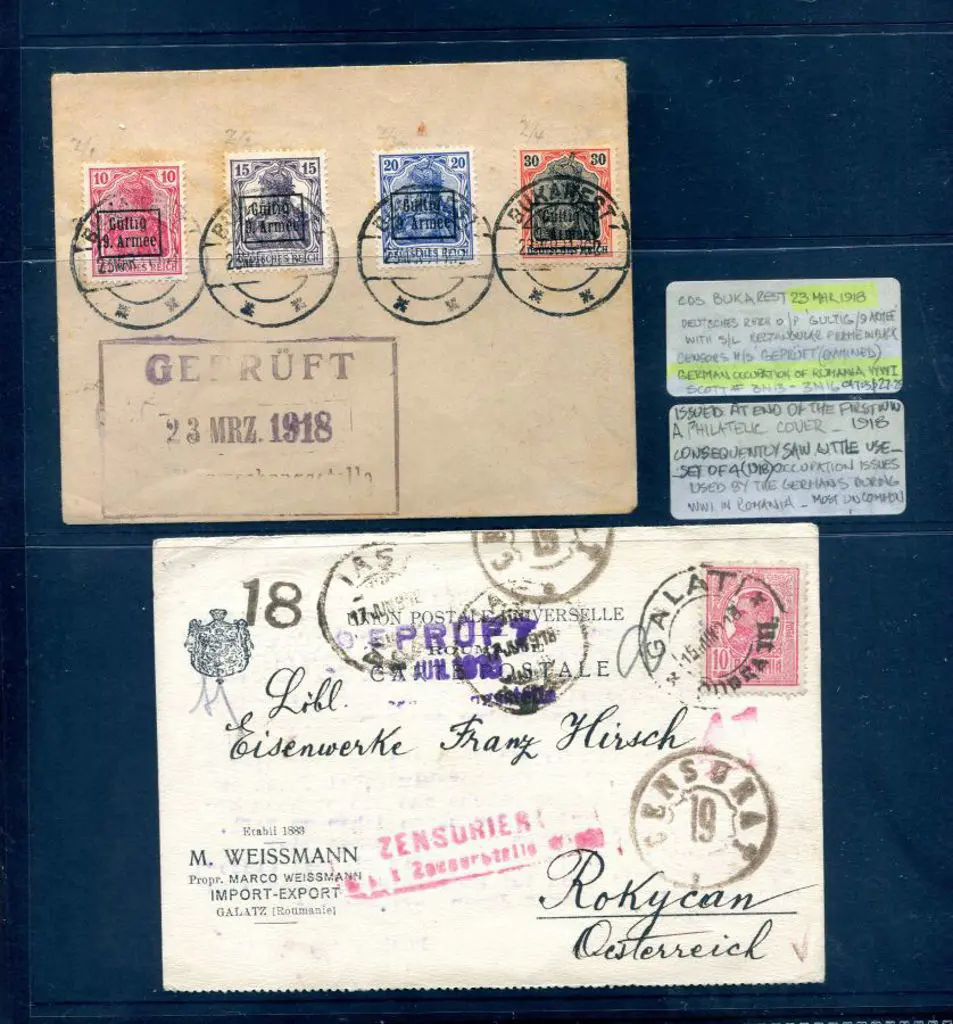 10 10
Gültig
9. Armee
DEUTSCHES REICH
15 15
Gültig
9. Armee
DEUTSCHES REICH
20 20
Gültig
9. Armee
DEUTSCHES REICH
30 30
BUKAREST
Gültig
GEPRÜFT
23 MRZ. 1918
CDS BUKAREST 23 MAR 1918
DEUTSCHES REICH O/P GULTIG/9 ARMEE
WITH S/L RECTANGULAR FRAME IN BLACK
CENSORS H/S GEPRÜFT (EXAMINED)
GERMAN OCCUPATION OF ROMANIA WWI
SCOTT # 3N13 - 3N16
ISSUED AT END OF THE FIRST WW
A PHILATELIC COVER - 1918
CONSEQUENTLY SAW LITTLE USE -
SET OF 4 (1918) OCCUPATION ISSUES
USED BY THE GERMANS DURING
WWI IN ROMANIA - MOST UNCOMMON
18
IAS
19
UNION POSTALE UNIVERSELLE
GEPRÜFT
ROUMANIE
CARTE POSTALE
GALATI
10
Löbl.
Eisenwerke Franz Hirsch
CENSURAT
19
ZENSURIERT
Etabil 1883
M. WEISSMANN
Propr. MARCO WEISSMANN
IMPORT-EXPORT
GALATZ (Roumanie)
Rokycan
Oesterreich